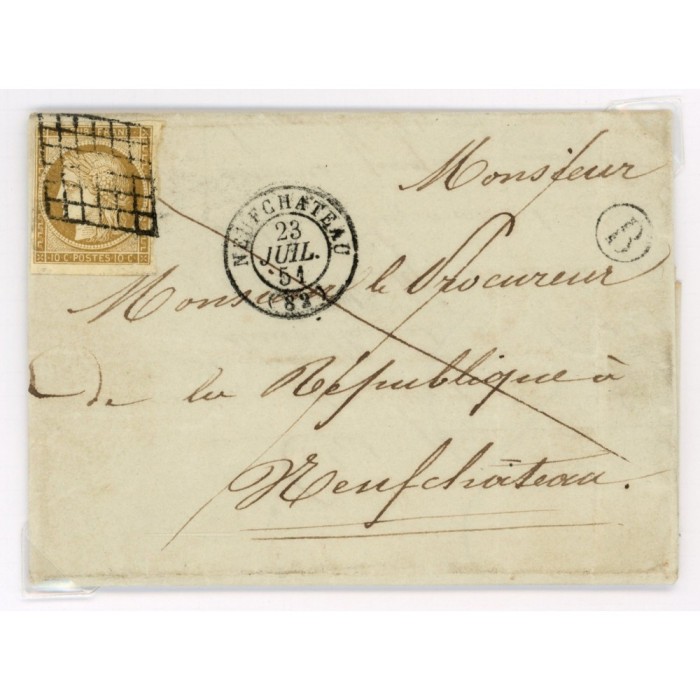 10 C POSTES 10 C
NEUFCHATEAU
23
JUIL.
51
(82)
B
Monsieur
Monsieur le Procureur
de la République à
Neufchâteau.